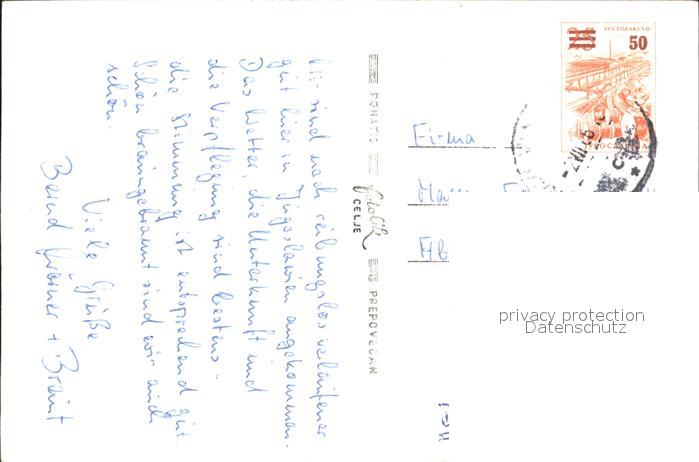 Wir sind nach reibungslos verlaufener
gut hier in Jugoslawien angekommen.
Das Wetter, die Unterkunft und
die Verpflegung sind bestens -
die Stimmung ist entsprechend gut.
Schön braungebrannt sind wir auch
schon.
Viele Grüße
Bernd
PONATIS
fotolik
CELJE
PREPOVEDAN
SVETOZAREVO
50
JUGOSLAVIJA
Firma
privacy protection
Datenschutz